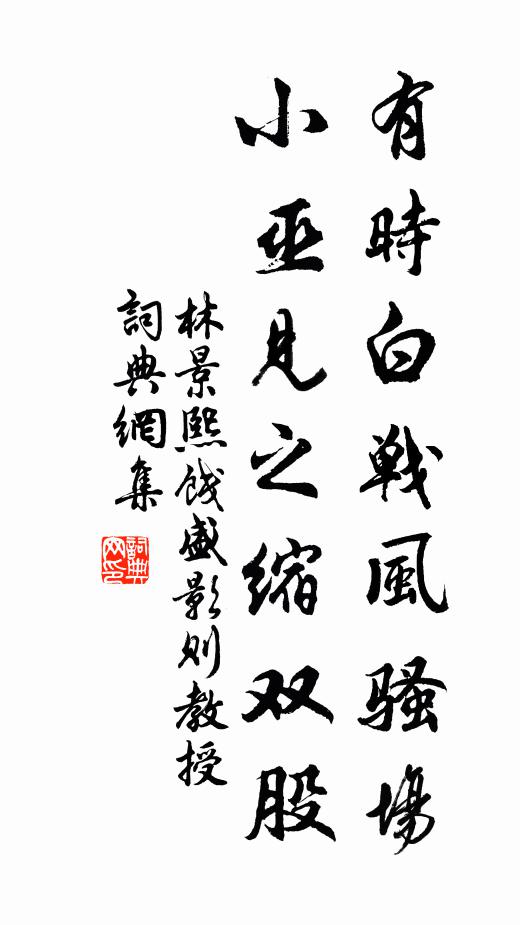 有時白戰風騷場
小巫見之缩双股
林景熙餞盛影則教授
詞典網集
詞典網印